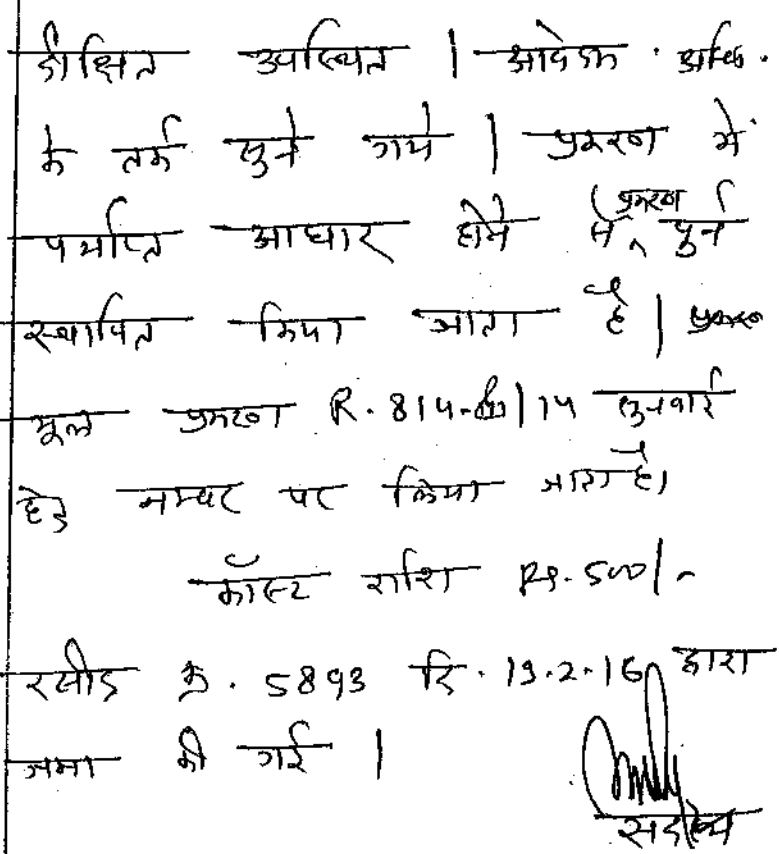 दीक्षित उपस्थित | आवेदक अभि.
के तर्क सुने गये | प्रकरण में
पर्याप्त आधार होने से प्रकरण पुर्न
स्थापित किया जाता है | प्रकरण
मूल प्रकरण R. 814- |14 सुनवाई
हेतु नम्बर पर लिया जाता है।
कॉस्ट राशि Rs. 500/-
रसीद क्र. 5893 दि. 19.2.16 द्वारा
जमा की गई |
सदस्य